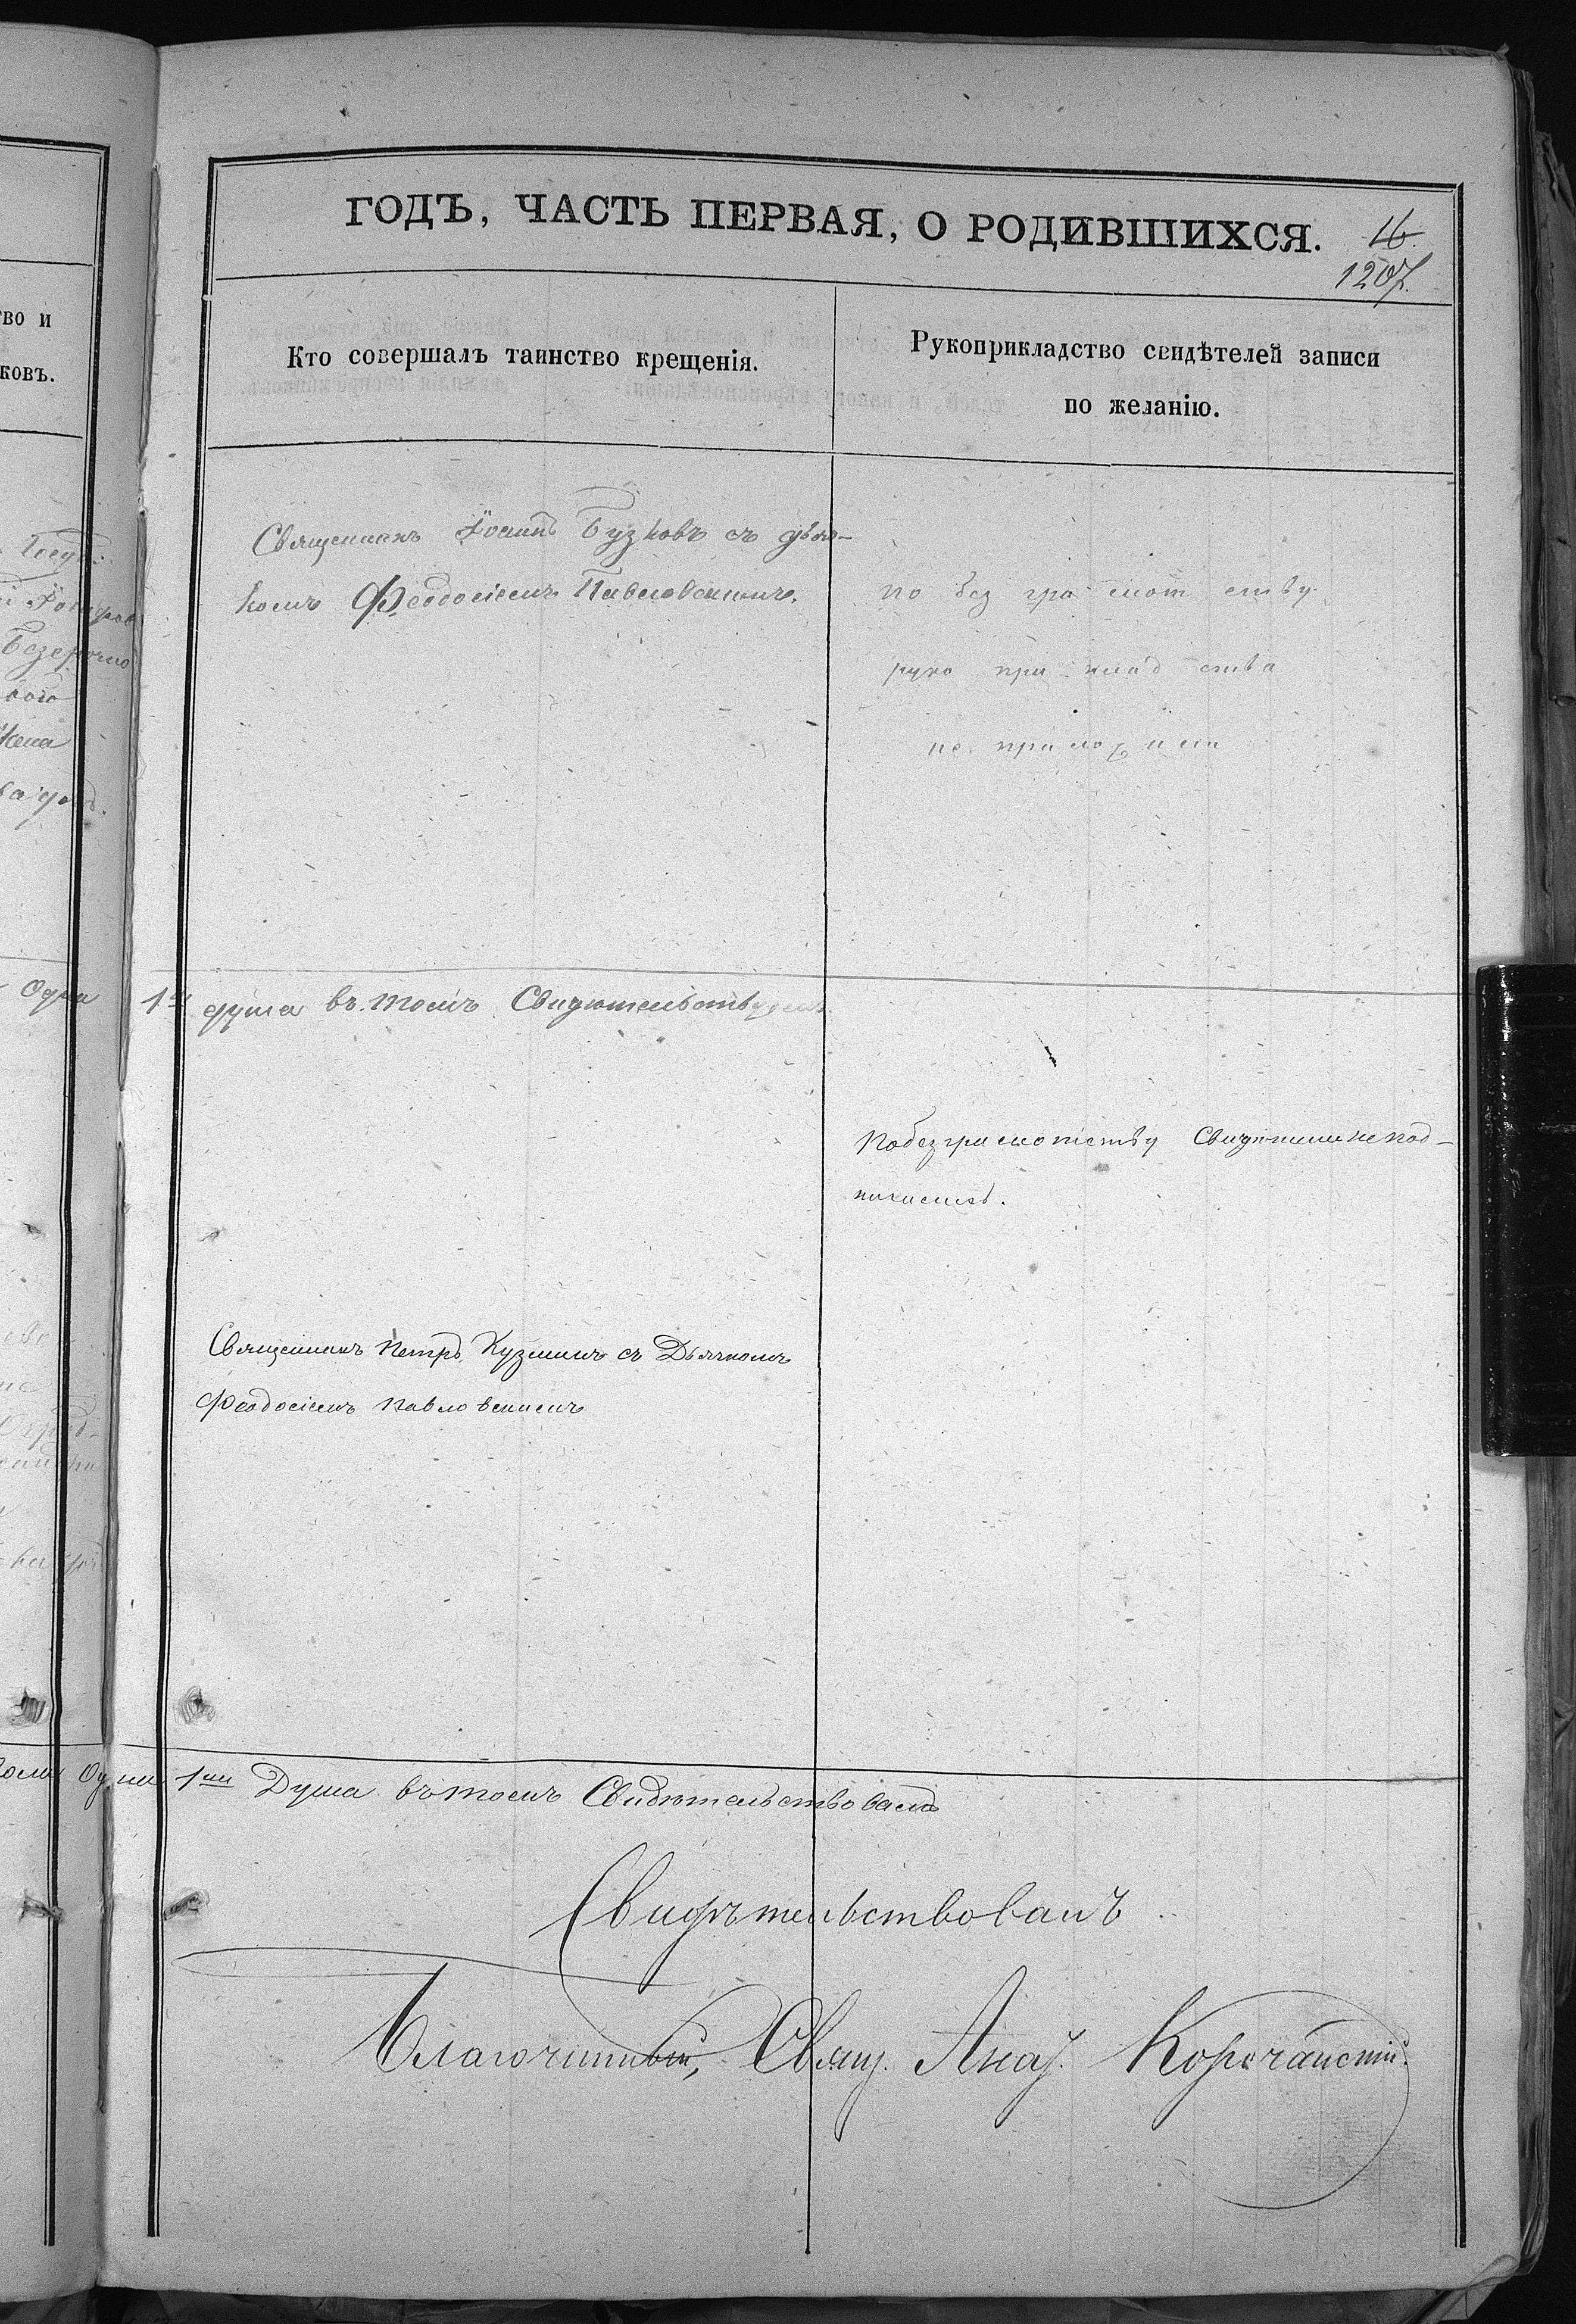 ГОДЪ, ЧАСТЬ ПЕРВАЯ, О РОДИВШИХСЯ.
16
1207.
Кто совершалъ таинство крещенія.
Рукоприкладство свидѣтелей записи
по желанію.
тво и
ковъ.
Священникъ Іоаннъ Бузковъ съ дьяч-
комъ Феодосіемъ Павловскимъ.
по без гра мот ству
руко при клад ства
не приложили
1
душа въ томъ Свидѣтельствуемъ
По безграмотству Свидѣтели не под-
писались.
Священникъ Петръ Кузминъ съ Дьячкомъ
Феодосіемъ Павловскимъ
1 Душа въ томъ Свидѣтельствовалъ
Свидѣтельствовалъ
Благочинный, Свящ. Корочанскій.